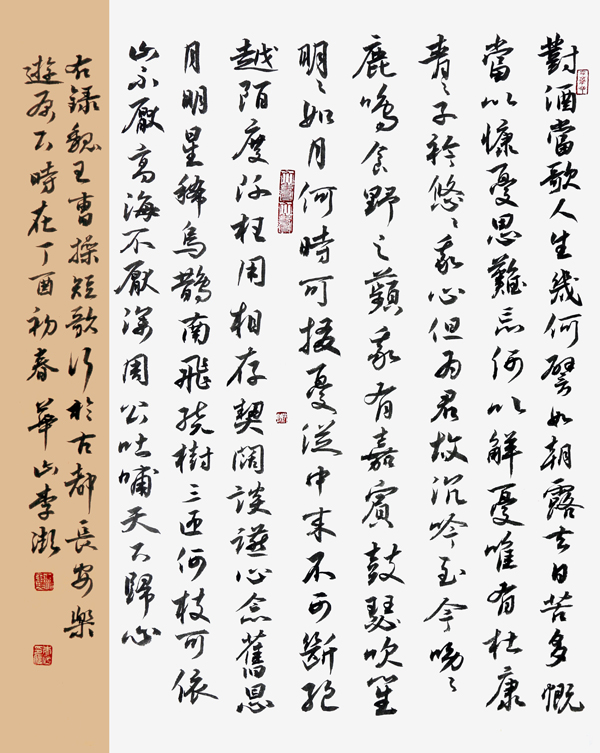 對酒當歌人生幾何譬如朝露去日苦多慨
當以慷憂思難忘何以解憂唯有杜康
青々子衿悠々我心但为君故沉吟至今呦々
鹿鳴食野之蘋我有嘉賓鼓瑟吹笙
明々如月何時可掇憂從中来不可斷絕
越陌度阡枉用相存契闊談讌心念舊恩
月明星稀烏鵲南飛绕樹三匝何枝可依
山不厭高海不厭深周公吐哺天下歸心
右錄魏王曹操短歌行於古都長安樂
遊原下時在丁酉初春華山李